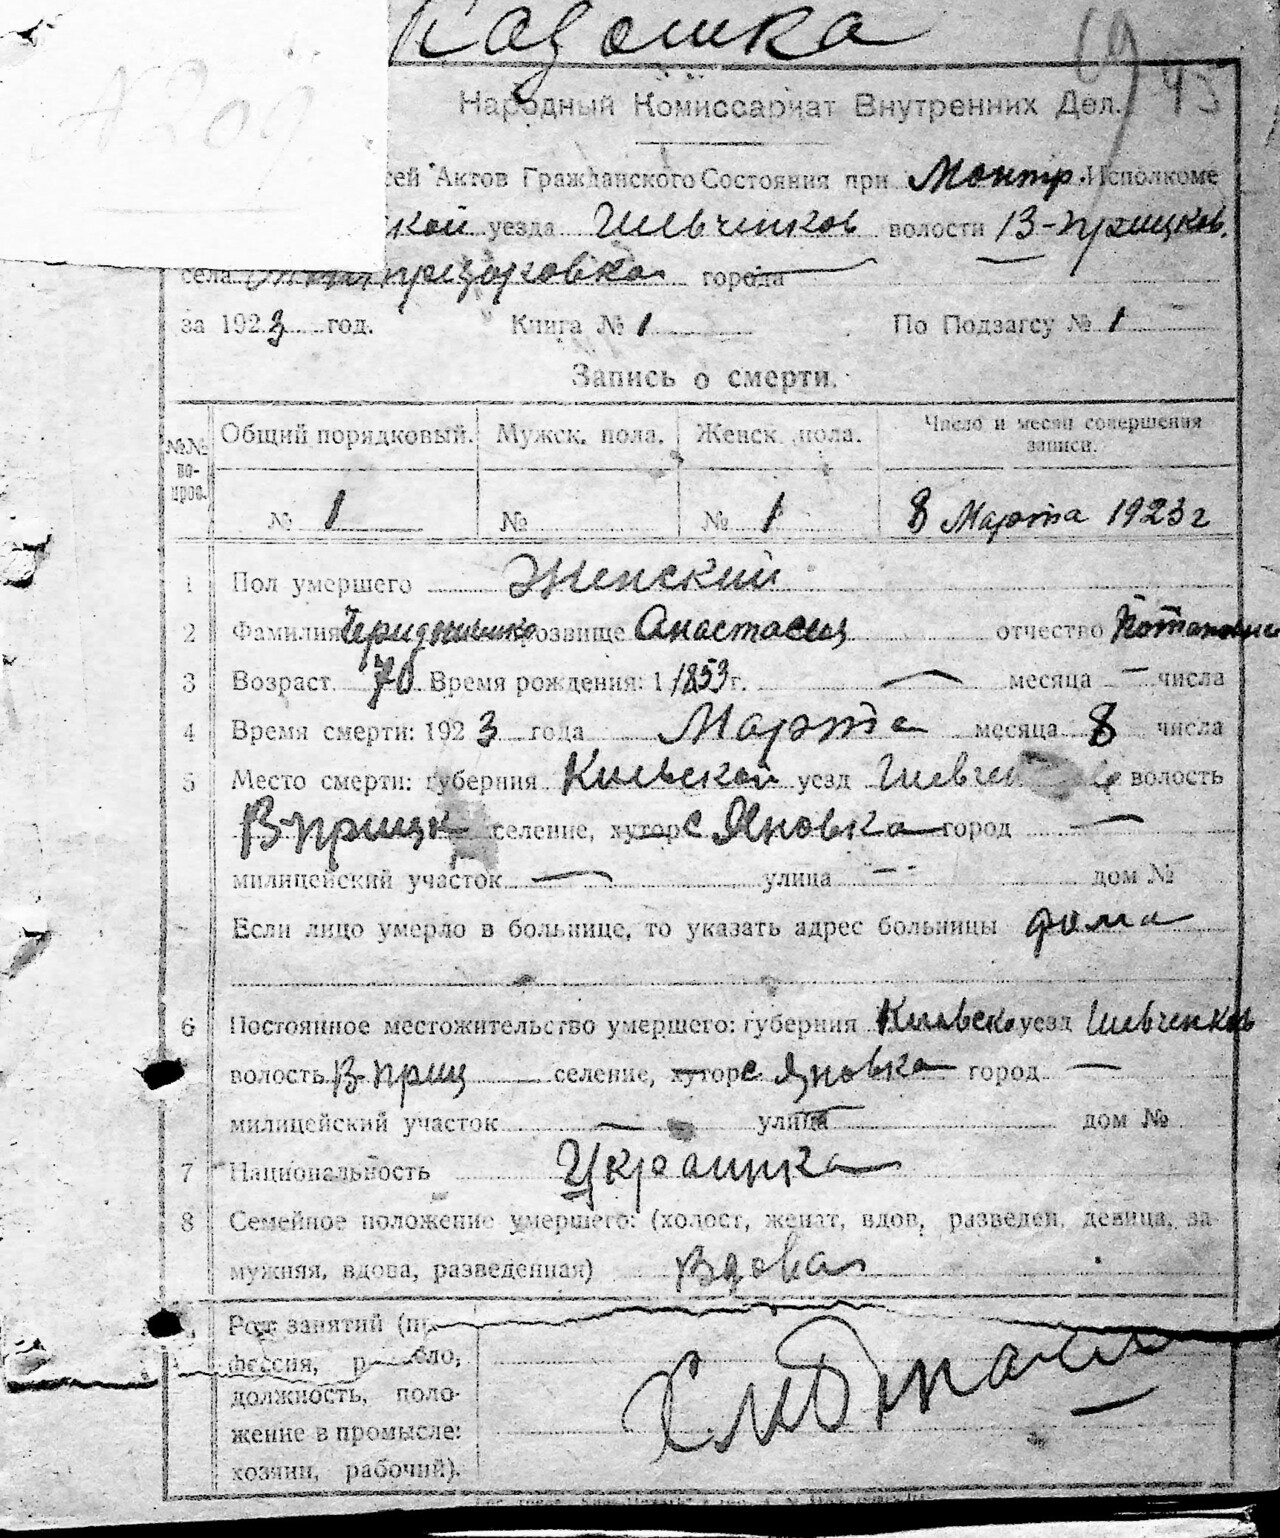 Народный Комиссариат Внутренних Дел. 45
сей Актов Гражданского Состояния при Монтр. Исполкоме
ской уезда Шевченков волости В-Прицков.
села города
за 1923 год. Книга № 1 По Подзагсу № 1
Запись о смерти.
№№ во-прос. Общий порядковый. Мужск. пола. Женск. пола. Число и месяц совершения записи.
№ 1 № № 1 8 Марта 1923 г
1 Пол умершего Женский
2 Фамилия прозвище Анастасия отчество
3 Возраст 70 Время рождения: 1 1853 г. — месяца — числа
4 Время смерти: 1923 года Марта месяца 8 числа
5 Место смерти: губерния Киевской уезд волость
В-Прицк селение, хутор с Яновка город —
милицейский участок — улица — дом №
Если лицо умерло в больнице, то указать адрес больницы дома
6 Постоянное местожительство умершего: губерния Киевско уезд Шевченков
волость В-Приц селение, хутор с Яновка город —
милицейский участок — улица — дом №
7 Национальность Украинка
8 Семейное положение умершего: (холост, женат, вдов, разведен, девица, за-
мужняя, вдова, разведенная) Вдова
Род занятий (п
фессия, ло,
должность, поло-
жение в промысле:
хозяин, рабочий).